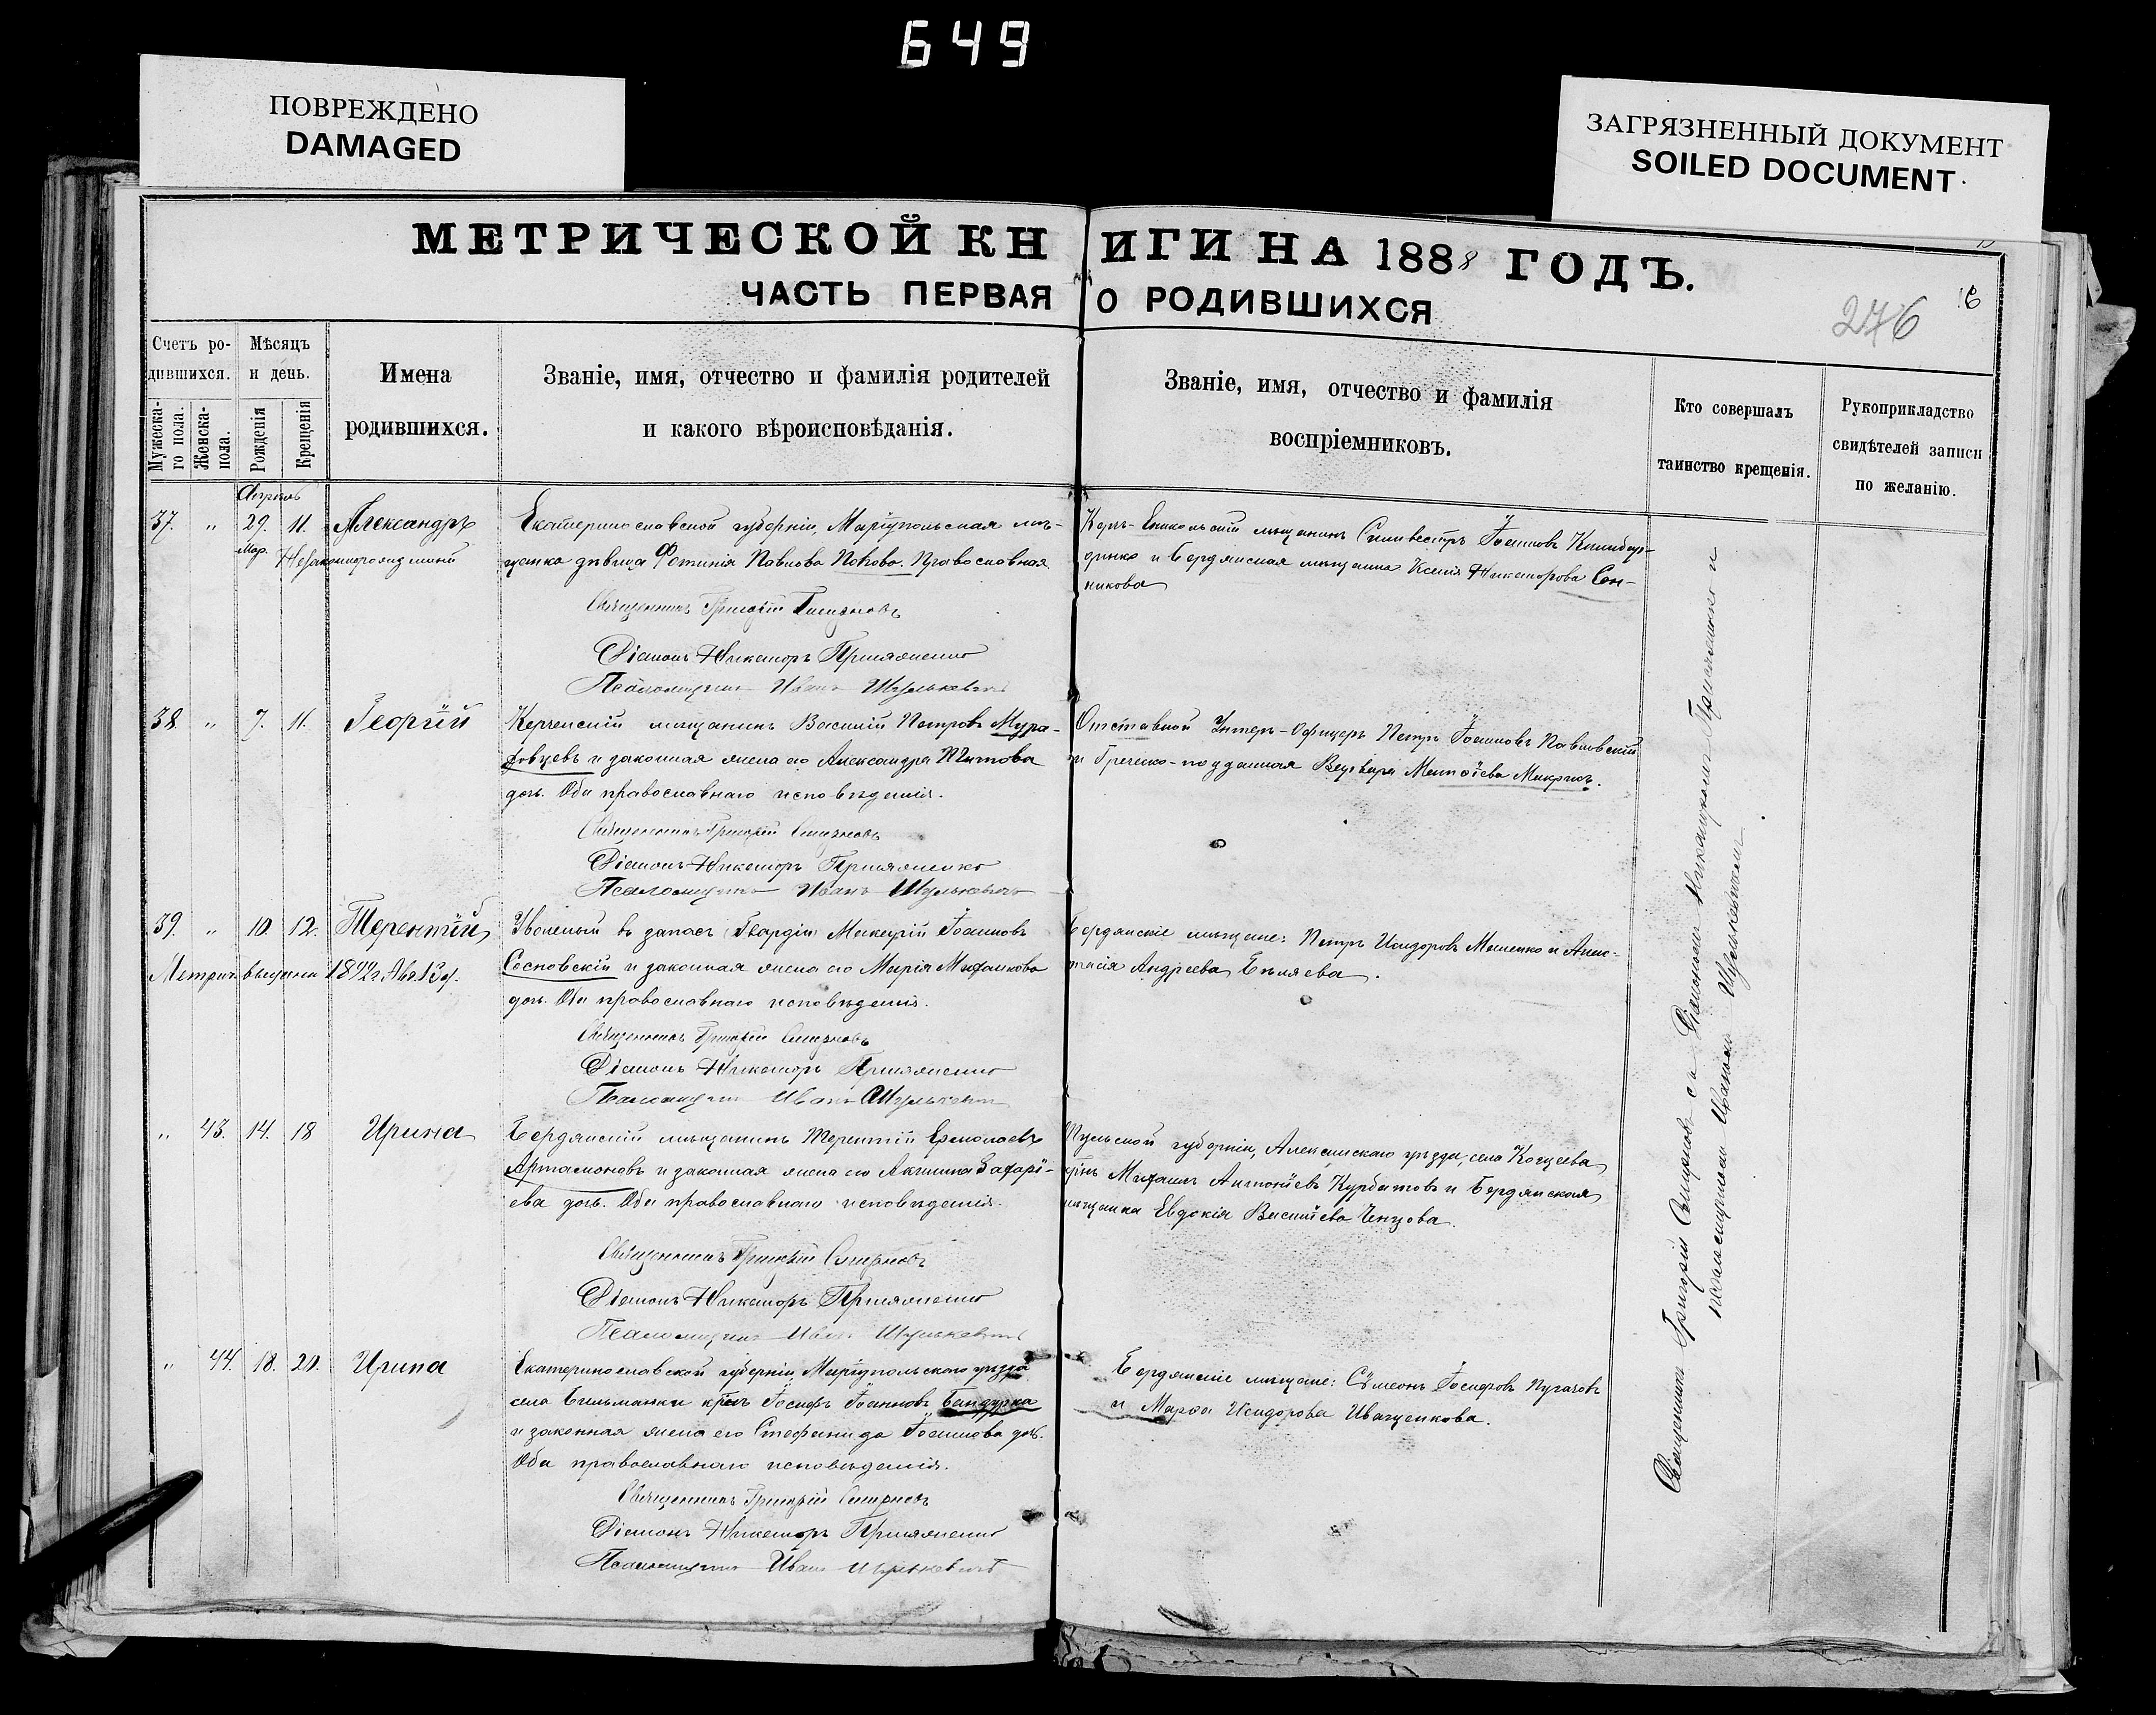 649
ПОВРЕЖДЕНО
DAMAGED
ЗАГРЯЗНЕННЫЙ ДОКУМЕНТ
SOILED DOCUMENT
МЕТРИЧЕСКОЙ КНИГИ НА 1888 ГОДЪ.
ЧАСТЬ ПЕРВАЯ О РОДИВШИХСЯ
276
16
Счетъ ро-
дившихся.
Мужеска-
го пола.
Женска-
пола.
Мѣсяцъ
и день.
Рожденія
Крещенія
Имена
родившихся.
Званіе, имя, отчество и фамилія родителей
и какого вѣроисповѣданія.
Званіе, имя, отчество и фамилія
воспріемниковъ.
Кто совершалъ
таинство крещенія.
Рукоприкладство
свидѣтелей записи
по желанію.
Апрѣль
37. " 29. 11. Александръ
Мар. Незаконнорожденный
Екатеринославской губерніи, Маріупольская мѣ-
щанка дѣвица Фотинія Павлова Попова. Православная.
Керчь-Еникольскій мѣщанинъ Силивестръ Іоанновъ
и Бердянская мѣщанка Ксенія Никифорова Сан-
никова
Священникъ Григорій Смирновъ
Діаконъ Никаноръ
Псаломщикъ Иванъ Шулькевичъ
38. " 7. 11. Георгій
Керченскій мѣщанинъ Василій Петровъ Мура-
и законная жена его Александра Титова
дочь. Оба православнаго исповѣданія.
Отставной Унтеръ-Офицеръ Петръ Іоанновъ Павловскій
и Греческо-подданная Варвара
Священникъ Григорій Смирновъ
Діаконъ Никаноръ
Псаломщикъ Иванъ Шулькевичъ
39. " 10. 12. Терентій
Уволеный въ запасъ Гвардіи Іоанновъ
Сосновскій и законная жена его Марія Михайлова
дочь. Оба православнаго исповѣданія.
Бердянскіе мѣщане: Петръ Исидоровъ и Анас-
тасія Андреева Бѣляева.
Священникъ Григорій Смирновъ
Діаконъ Никаноръ
Псаломщикъ Иванъ Шулькевичъ
" 43. 14. 18 Ирина
Бердянскій мѣщанинъ Терентій Ермолаевъ
Артамоновъ и законная жена его Акилина Захарі-
ева дочь. Оба православнаго исповѣданія.
Тульской губерніи, Алексинскаго уѣзда, села
Михаилъ Антоніевъ Курбатовъ и Бердянская
мѣщанка Евдокія Василіева Ченцова.
Священникъ Григорій Смирновъ
Діаконъ Никаноръ
Псаломщикъ Иванъ Шулькевичъ
" 44. 18. 20. Ирина
Екатеринославской губерніи, Маріупольскаго уѣзда
села Бельманки Іосифъ Іоанновъ Бандурка
и законная жена его Стефанида Іоаннова дочь.
Оба православнаго исповѣданія.
Бердянскіе мѣщане: Сѵмеонъ Іосифовъ Пугачовъ
и Марѳа Исидорова Иващенкова.
Священникъ Григорій Смирновъ
Діаконъ Никаноръ
Псаломщикъ Иванъ Шулькевичъ
Священникъ Григорій Смирновъ съ Діакономъ и
псаломщикомъ Иваномъ Шулькевичемъ